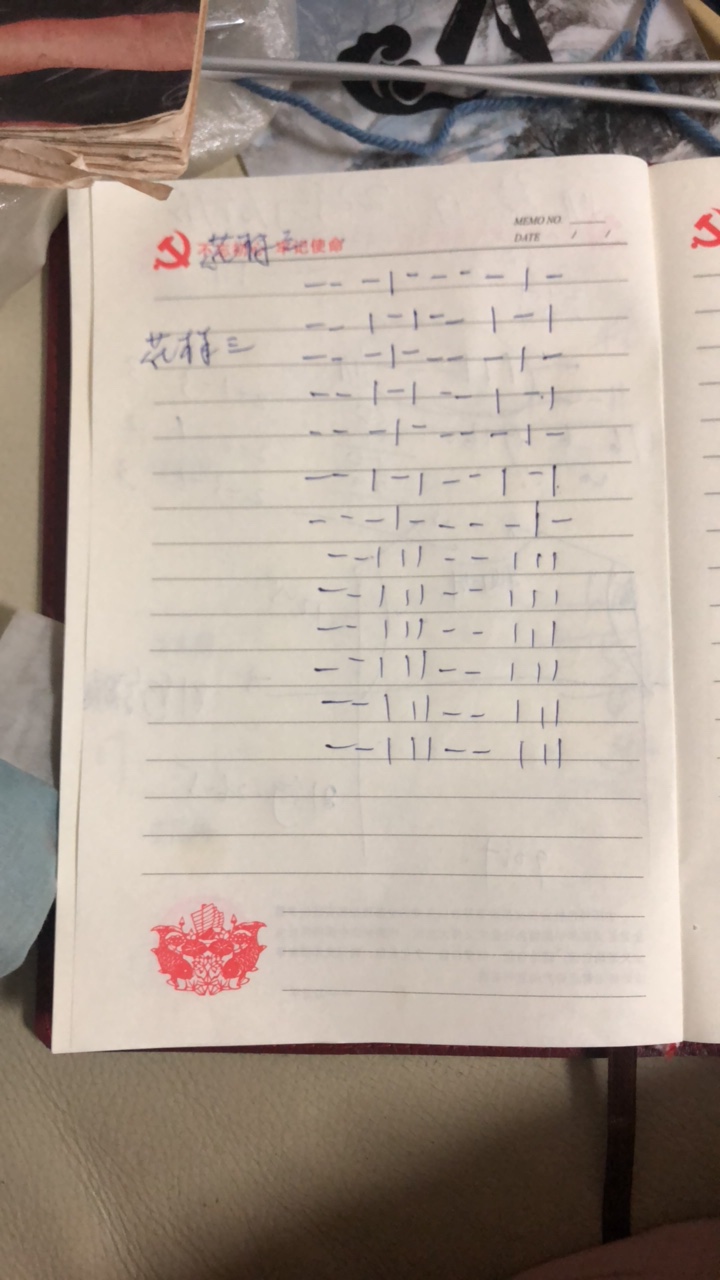 MEMO NO.
DATE / /
不忘初心 牢记使命
花样二
— — — | — — — — | —
— — | — | — — | — |
花样三
— — — | — — — — | —
— — | — | — — | — |
— — — | — — — — | —
— — | — | — — | — |
— — — | — — — — | —
— — | | | — — | | |
— — | | | — — | | |
— — | | | — — | | |
— — | | | — — | | |
— — | | | — — | | |
— — | | | — — | | |